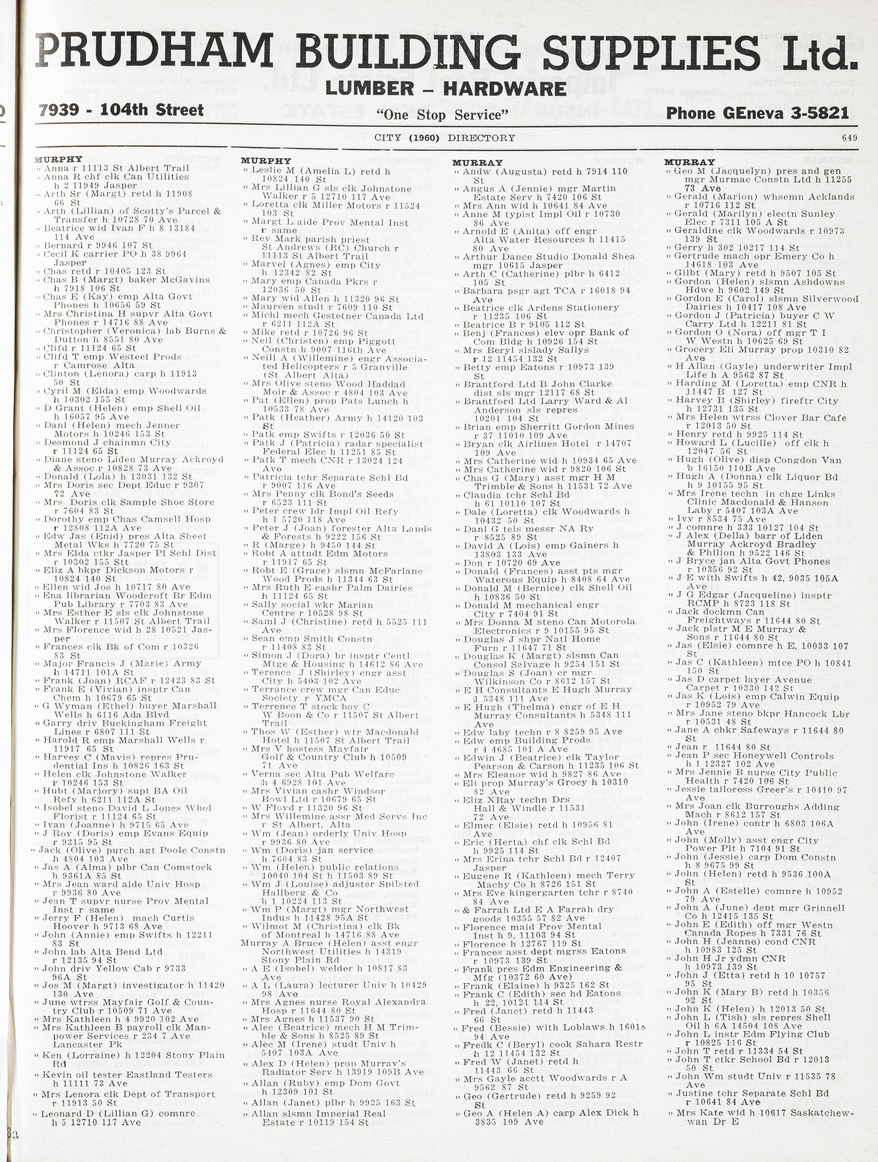 PRUDHAM BUILDING SUPPLIES Ltd.
LUMBER – HARDWARE
7939 - 104th Street
“One Stop Service”
Phone GEneva 3-5821
CITY (1960) DIRECTORY
649
MURPHY
" Anna r 11113 St Albert Trail
" Anna R chf clk Can Utilities
h 2 11949 Jasper
" Arth Sr (Margt) retd h 11908
66 St
" Arth (Lillian) of Scotty's Parcel &
Transfer h 10728 70 Ave
" Beatrice wid Ivan F h 8 13184
114 Ave
" Bernard r 9946 107 St
" Cecil K carrier PO h 38 9964
Jasper
" Chas retd r 10405 123 St
" Chas B (Margt) baker McGavins
h 7918 106 St
" Chas E (Kay) emp Alta Govt
Phones h 10656 59 St
" Mrs Christina H supvr Alta Govt
Phones r 14716 88 Ave
" Christopher (Veronica) lab Burns &
Dutton h 8551 80 Ave
" Clifd r 11124 65 St
" Clifd T emp Westeel Prods
r Camrose Alta
" Clinton (Lenora) carp h 11913
50 St
" Cyril M (Elda) emp Woodwards
h 10302 155 St
" D Grant (Helen) emp Shell Oil
h 16057 95 Ave
" Danl (Helen) mech Jenner
Motors h 10246 153 St
" Desmond J chainmn City
r 11124 65 St
" Diane steno Liden Murray Ackroyd
& Assoc r 10828 73 Ave
" Donald (Lola) h 13031 132 St
" Mrs Doris sec Dept Educ r 9307
72 Ave
" Mrs Doris clk Sample Shoe Store
r 7604 83 St
" Dorothy emp Chas Camsell Hosp
r 12808 112A Ave
" Edw Jas (Enid) pres Alta Sheet
Metal Wks h 7720 75 St
" Mrs Elda ctkr Jasper Pl Schl Dist
r 10302 155 Stt
" Eliz A bkpr Dickson Motors r
10824 140 St
" Ellen wid Jos h 10717 80 Ave
" Ena librarian Woodcroft Br Edm
Pub Library r 7703 83 Ave
" Mrs Esther E sls clk Johnstone
Walker r 11507 St Albert Trail
" Mrs Florence wid h 28 10521 Jas-
per
" Frances clk Bk of Com r 10326
83 St
" Major Francis J (Marie) Army
h 14711 101A St
" Frank (Joan) RCAF r 12423 83 St
" Frank E (Vivian) insptr Can
Chem h 10679 65 St
" G Wyman (Ethel) buyer Marshall
Wells h 6116 Ada Blvd
" Garry driv Buckingham Freight
Lines r 6807 111 St
" Harold R emp Marshall Wells r
11917 65 St
" Harvey C (Mavis) repres Pru-
dential Ins h 10826 163 St
" Helen clk Johnstone Walker
r 10246 153 St
" Hubt (Marjory) supt BA Oil
Refy h 6211 112A St
" Isobel steno David L Jones Whol
Florist r 11124 65 St
" Ivan (Joanne) h 9715 65 Ave
" J Roy (Doris) emp Evans Equip
r 9215 95 St
" Jack (Olive) purch agt Poole Constn
h 4804 103 Ave
" Jas A (Alma) plbr Can Comstock
h 9361A 85 St
" Mrs Jean ward aide Univ Hosp
r 9936 80 Ave
" Jean T supvr nurse Prov Mental
Inst r same
" Jerry F (Helen) mach Curtis
Hoover h 9713 68 Ave
" John (Annie) emp Swifts h 12211
83 St
" John lab Alta Bend Ltd
r 12135 94 St
" John driv Yellow Cab r 9733
96A St
" Jos M (Margt) investigator h 11420
130 Ave
" June wtrss Mayfair Golf & Coun-
try Club r 10509 71 Ave
" Mrs Kathleen h 4 9920 102 Ave
" Mrs Kathleen B payroll clk Man-
power Services r 234 7 Ave
Lancaster Pk
" Ken (Lorraine) h 12204 Stony Plain
Rd
" Kevin oil tester Eastland Testers
h 11111 73 Ave
" Mrs Lenora clk Dept of Transport
r 11913 50 St
" Leonard D (Lillian G) comnre
h 5 12710 117 Ave
MURPHY
" Leslie M (Amelia L) retd h
10824 140 St
" Mrs Lillian G sls clk Johnstone
Walker r 5 12710 117 Ave
" Loretta clk Miller Motors r 11524
103 St
" Margt L aide Prov Mental Inst
r same
" Rev Mark parish priest
St Andrews (RC) Church r
11113 St Albert Trail
" Marvel (Agnes) emp City
h 12342 82 St
" Mary emp Canada Pkrs r
12036 50 St
" Mary wid Allen h 11320 96 St
" Maureen studt r 7609 110 St
" Michl mech Gestetner Canada Ltd
r 6211 112A St
" Mike retd r 10726 96 St
" Neil (Christen) emp Piggott
Constn h 9007 116th Ave
" Neill A (Willemine) engr Associa-
ted Helicopters r 5 Granville
(St Albert)
" Mrs Olive steno Wood Haddad
Moir & Assoc r 4804 103 Ave
" Pat (Ellen) prop Pats Lunch h
10533 78 Ave
" Patk (Heather) Army h 14120 103
St
" Patk emp Swifts r 12036 50 St
" Patk J (Patricia) radar specialist
Federal Elec h 11251 85 St
" Patk T mech CNR r 13024 124
Ave
" Patricia tchr Separate Schl Bd
r 9007 116 Ave
" Mrs Penny clk Bond's Seeds
r 6523 111 St
" Peter crew ldr Impl Oil Refy
h 1 5720 118 Ave
" Peter J (Joan) forester Alta Lands
& Forests h 9222 156 St
" R (Marge) h 9450 144 St
" Robt A attndt Edm Motors
r 11917 65 St
" Robt E (Grace) slsmn McFarlane
Wood Prods h 11344 63 St
" Mrs Ruth E cashr Palm Dairies
h 11124 65 St
" Sally social wkr Marian
Centre r 10528 98 St
" Saml J (Christine) retd h 5525 111
Ave
" Sean emp Smith Constn
r 11408 83 St
" Simon J (Dora) br insptr Centl
Mtge & Housing h 14612 86 Ave
" Terence J (Shirley) engr asst
City h 5403 102 Ave
" Terrance crew mgr Can Educ
Society r YMCA
" Terrence T stock boy C
W Boon & Co r 11507 St Albert
Trail
" Thos W (Esther) wtr Macdonald
Hotel h 11507 St Albert Trail
" Mrs V hostess Mayfair
Golf & Country Club h 10509
71 Ave
" Verna sec Alta Pub Welfare
h 4 6928 101 Ave
" Mrs Vivian cashr Windsor
Bowl Ltd r 10679 65 St
" W Floyd r 11320 96 St
" Mrs Willemine assr Med Servs Inc
r St Albert, Alta
" Wm (Jean) orderly Univ Hosp
r 9936 80 Ave
" Wm (Doris) jan service
h 7604 83 St
" Wm (Helen) public relations
10040 104 St h 11503 89 St
" Wm J (Louise) adjuster Spilsted
Hallberg & Co
h 1 10224 113 St
" Wm P (Margt) mgr Northwest
Indus h 11428 95A St
" Wilmot M (Christina) clk Bk
of Montreal h 14716 88 Ave
Murray A Bruce (Helen) asst engr
Northwest Utilities h 14319
Stony Plain Rd
" A E (Isobel) welder h 10817 83
Ave
" A L (Laura) lecturer Univ h 10429
98 Ave
" Mrs Agnes nurse Royal Alexandra
Hosp r 11644 80 St
" Mrs Agnes h 11537 90 St
" Alec (Beatrice) mech H M Trim-
ble & Sons h 8525 89 St
" Alec M (Irene) studt Univ h
5407 103A Ave
" Alex D (Helen) prop Murray's
Radiator Serv h 13919 109B Ave
" Allan (Ruby) emp Dom Govt
h 12309 101 St
" Allan (Janet) plbr h 9925 163 St
" Allan slsmn Imperial Real
Estate r 10119 154 St
MURRAY
" Andw (Augusta) retd h 7914 110
St
" Angus A (Jennie) mgr Martin
Estate Serv h 7420 106 St
" Mrs Ann wid h 10641 84 Ave
" Anne M typist Impl Oil r 10730
86 Ave
" Arnold E (Anita) off engr
Alta Water Resources h 11415
80 Ave
" Arthur Dance Studio Donald Shea
mgr 10615 Jasper
" Arth C (Catherine) plbr h 6412
105 St
" Barbara psgr agt TCA r 16018 94
Ave
" Beatrice clk Ardens Stationery
r 11235 106 St
" Beatrice B r 9105 112 St
" Benj (Frances) elev opr Bank of
Com Bldg h 10926 154 St
" Mrs Beryl slslady Sallys
r 12 11454 132 St
" Betty emp Eatons r 10973 139
St
" Brantford Ltd B John Clarke
dist sls mgr 12117 68 St
" Brantford Ltd Larry Ward & Al
Anderson sls repres
10201 104 St
" Brian emp Sherritt Gordon Mines
r 37 11010 109 Ave
" Bryan clk Airlines Hotel r 14707
109 Ave
" Mrs Catherine wid h 10934 65 Ave
" Mrs Catherine wid r 9820 106 St
" Chas G (Mary) asst mgr H M
Trimble & Sons h 11531 72 Ave
" Claudia tchr Schl Bd
h 61 10110 107 St
" Dale (Loretta) clk Woodwards h
10432 50 St
" Danl G tels messr NA Ry
r 8525 89 St
" David A (Lois) emp Gainers h
13803 133 Ave
" Don r 10720 69 Ave
" Donald (Frances) asst pts mgr
Waterous Equip h 8408 64 Ave
" Donald M (Bernice) clk Shell Oil
h 10836 50 St
" Donald M mechanical engr
City r 7404 91 St
" Mrs Donna M steno Can Motorola
Electronics r 9 10155 95 St
" Douglas J shpr Natl Home
Furn r 11647 71 St
" Douglas K (Margt) slsmn Can
Consol Salvage h 9254 151 St
" Douglas S (Joan) cr mgr
Wilkinson Co r 8612 157 St
" E H Consultants E Hugh Murray
J 5348 111 Ave
" E Hugh (Thelma) engr of E H
Murray Consultants h 5348 111
Ave
" Edw laby techn r 8 8259 95 Ave
" Edw emp Building Prods
r 4 4685 101 A Ave
" Edwin J (Beatrice) clk Taylor
Pearson & Carson h 11235 106 St
" Mrs Eleanor wid h 9827 86 Ave
" Eli prop Murray's Grocy h 10310
82 Ave
" Eliz XRay techn Drs
Hall & Windle r 11531
72 Ave
" Elmer (Elsie) retd h 10956 81
Ave
" Eric (Herta) chf clk Schl Bd
h 9925 114 St
" Mrs Erina tchr Schl Bd r 12407
Jasper
" Eugene R (Kathleen) mech Terry
Machy Co h 8726 151 St
" Mrs Eve kingergarten tchr r 8740
84 Ave
" & Farrah Ltd E A Farrah dry
goods 10355 57 82 Ave
" Florence maid Prov Mental
Inst h 9, 11103 94 St
" Florence h 12767 119 St
" Frances asst dept mgrss Eatons
r 10973 139 St
" Frank pres Edm Engineering &
Mfg (10372 60 Ave)
" Frank (Elaine) h 9325 162 St
" Frank C (Edith) sec hd Eatons
h 22, 10121 114 St
" Fred (Janet) retd h 11443
66 St
" Fred (Bessie) with Loblaws h 16018
94 Ave
" Fredk C (Beryl) cook Sahara Restr
h 12 11454 132 St
" Fred W (Janet) retd h
11443 66 St
" Mrs Gayle acctt Woodwards r A
9562 87 St
" Geo (Gertrude) retd h 9259 92
St
" Geo A (Helen A) carp Alex Dick h
3835 109 Ave
MURRAY
" Geo M (Jacquelyn) pres and gen
mgr Murmac Constn Ltd h 11255
73 Ave
" Gerald (Marion) whsemn Acklands
r 10716 112 St
" Gerald (Marilyn) electn Sunley
Elec r 7311 105 A St
" Geraldine clk Woodwards r 10973
139 St
" Gerry h 302 10217 114 St
" Gertrude mach opr Emery Co h
14618 103 Ave
" Gilbt (Mary) retd h 9507 105 St
" Gordon (Helen) slsmn Ashdowns
Hdwe h 9602 149 St
" Gordon E (Carol) slsmn Silverwood
Dairies h 10417 108 Ave
" Gordon J (Patricia) buyer C W
Carry Ltd h 12211 81 St
" Gordon O (Nora) off mgr T I
W Westn h 10625 69 St
" Grocery Eli Murray prop 10310 82
Ave
" H Allan (Gayle) underwriter Impl
Life h A 9562 87 St
" Harding M (Loretta) emp CNR h
11447 B 127 St
" Harvey B (Shirley) fireftr City
h 12731 135 St
" Mrs Helen wtrss Clover Bar Cafe
r 12013 50 St
" Henry retd h 9925 114 St
" Howard L (Lucille) off clk h
12047 56 St
" Hugh (Olive) disp Congdon Van
h 16150 110B Ave
" Hugh A (Donna) clk Liquor Bd
h 9 10155 95 St
" Mrs Irene techn in chge Links
Clinic Macdonald & Hanson
Laby r 5407 103A Ave
" Ivy r 8534 75 Ave
" J comnre h 333 10127 104 St
" J Alex (Della) barr of Liden
Murray Ackroyd Bradley
& Philion h 9522 146 St
" J Bryce jan Alta Govt Phones
r 10356 92 St
" J E with Swifts h 42, 9035 105A
Ave
" J G Edgar (Jacqueline) insptr
RCMP h 8723 118 St
" Jack dockmn Can
Freightways r 11644 80 St
" Jack plstr M E Murray &
Sons r 11644 80 St
" Jas (Elsie) comnre h E, 10033 107
St
" Jas C (Kathleen) mtce PO h 10841
150 St
" Jas D carpet layer Avenue
Carpet r 10330 142 St
" Jas K (Lois) emp Calwin Equip
r 10952 79 Ave
" Mrs Jane steno bkpr Hancock Lbr
r 10531 48 St
" Jane A chkr Safeways r 11644 80
St
" Jean r 11644 80 St
" Jean P sec Honeywell Controls
h 1 12327 102 Ave
" Mrs Jennie B nurse City Public
Health r 7420 106 St
" Jessie tailoress Greer's r 10410 97
Ave
" Mrs Joan clk Burroughs Adding
Mach r 8612 157 St
" John (Irene) contr h 6803 106A
Ave
" John (Molly) asst engr City
Power Plt h 7104 91 St
" John (Jessie) carp Dom Constn
h 8 9675 99 St
" John (Helen) retd h 9536 100A
St
" John A (Estelle) comnre h 10952
79 Ave
" John A (June) dept mgr Grinnell
Co h 12415 135 St
" John E (Edith) off mgr Westn
Canada Ropes h 7331 76 St
" John H (Jeanne) cond CNR
h 10983 125 St
" John H Jr ydmn CNR
h 10973 139 St
" John J (Etta) retd h 10 10757
95 St
" John K (Mary B) retd h 10356
92 St
" John K (Helen) h 12013 50 St
" John L (Tish) sls repres shell
Oil h 6A 14504 108 Ave
" John L instr Edm Flying Club
r 10825 116 St
" John T retd r 11334 54 St
" John T ctkr School Bd r 12013
50 St
" John Wm studt Univ r 11535 78
Ave
" Justine tchr Separate Schl Bd
r 10641 84 Ave
" Mrs Kate wid h 10617 Saskatchew-
wan Dr E